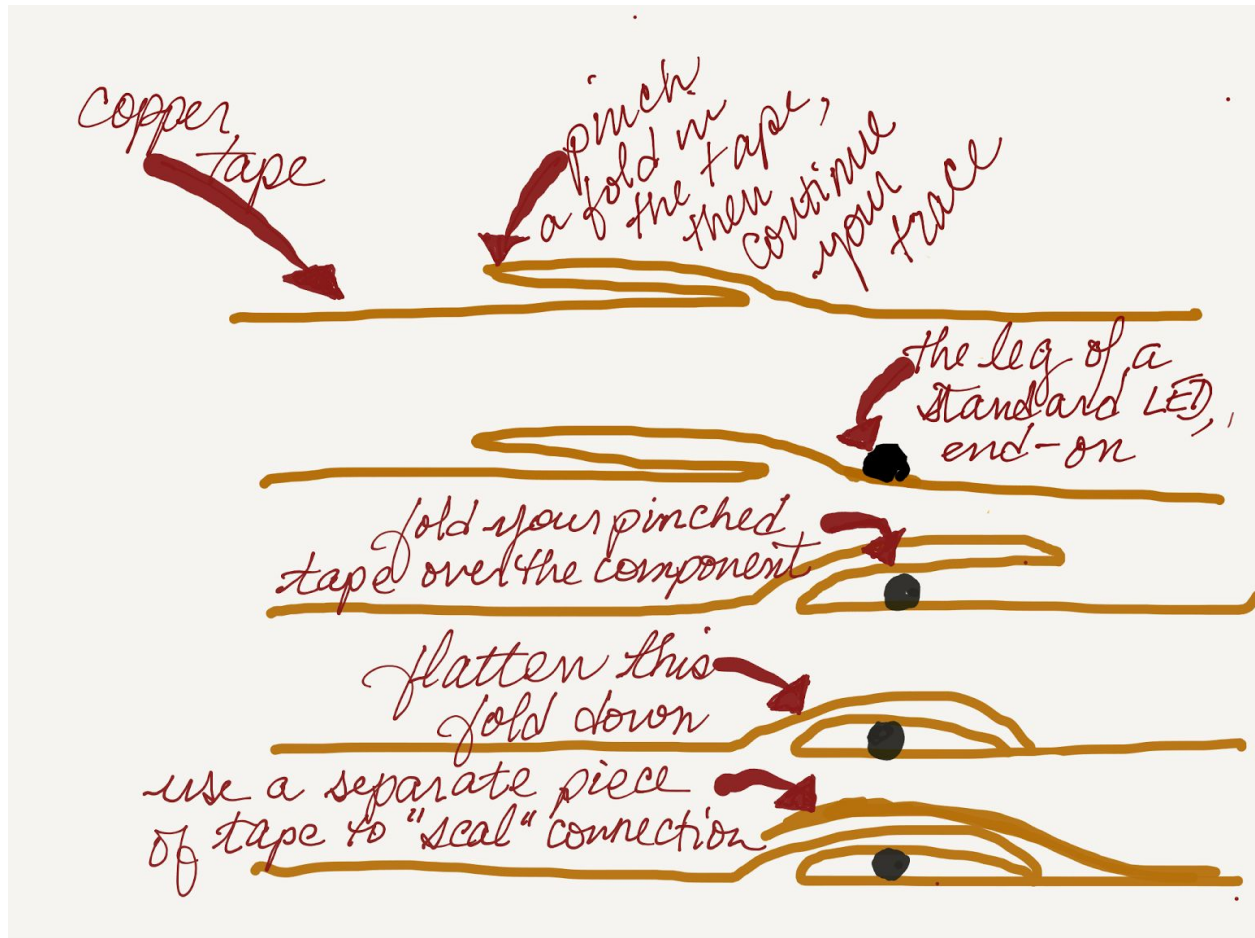 copper
tape
pinch
a fold in
the tape,
then
continue
your
trace
the leg of a
standard LED,
end-on
fold your pinched
tape over the component
flatten this
fold down
use a separate piece
of tape to "seal" connection